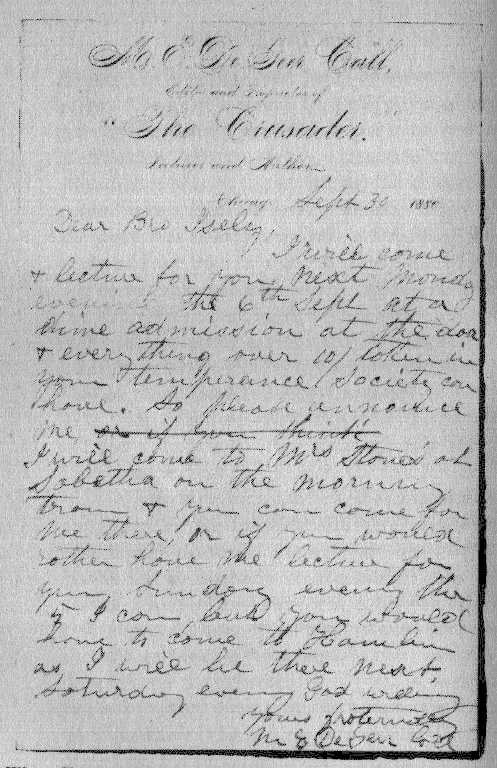 M. E. De Geer Call,
Editor and Proprietor of
"The Crusader.
Lecturer and Author
Sept 30 1880
Dear Bro Isely,
I will come
& lecture for you next Monday
evening the 6th Sept at a
dime admission at the door
& everything over 10/ taken in
your temperance society can
have. So please announce
me or if you think
I will come to Mrs Stone's at
Sabetha on the morning
train & you can come for
me there, or if you would
rather have me lecture for
you Sunday evening the
5 I can, but you would
have to come to Hamlin
as I will be there next
Saturday evening God willing
Yours fraternally
M E DeGeer Call